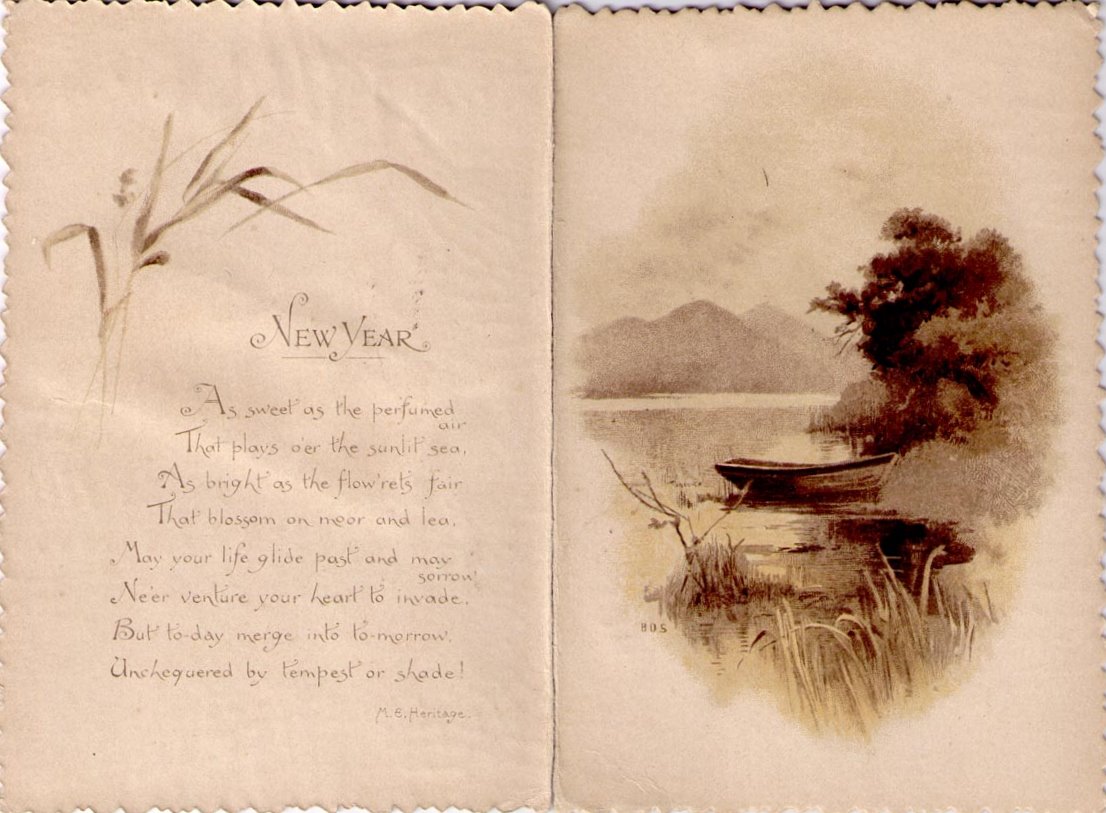 New Year
As sweet as the perfumed
air
That plays o'er the sunlit sea,
As bright as the flow'rets fair
That blossom on moor and lea,
May your life glide past and may
sorrow
Ne'er venture your heart to invade,
But to-day merge into to-morrow,
Unchequered by tempest or shade!
M. E. Heritage.
BOS